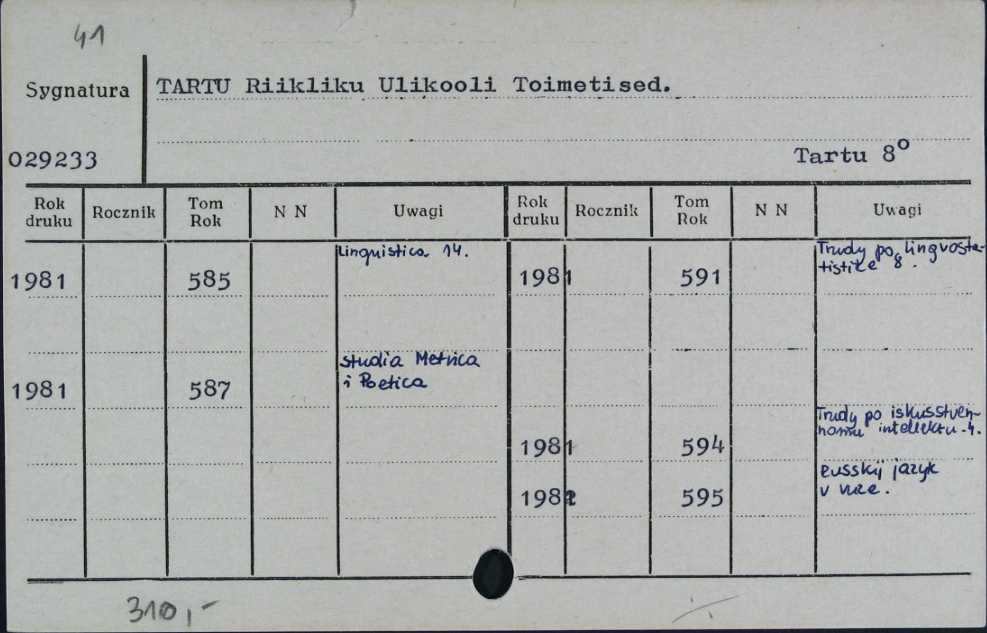 41
Sygnatura
TARTU Riikliku Ulikooli Toimetised.
029233
Tartu 8°
Rok druku
Rocznik
Tom Rok
N N
Uwagi
Rok druku
Rocznik
Tom Rok
N N
Uwagi
1981 585 Linguistica 14.
1981 587 Studia Metrica
i Poetica
1981 591 Trudy po lingvosta-
tistike 8.
1981 594 Trudy po iskusstven-
nomu intellektu 4.
595 Russkij jazyk
v vuze.
310,-